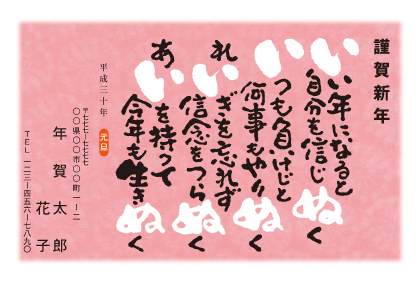 謹賀新年
いい年になると
自分を信じぬく
いつも負けじと
何事もやりぬく
れいぎを忘れず
信念をつらぬく
あいを持って
今年も生きぬく
平成三十年 元旦
〒七七七-七七七七
〇〇県〇〇市〇〇町一-二
年賀太郎
花子
TEL 一二三-四五六-七八九〇